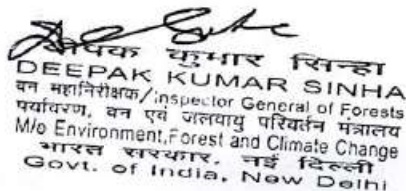 दीपक कुमार सिन्हा
DEEPAK KUMAR SINHA
वन महानिरीक्षक/Inspector General of Forests
पर्यावरण, वन एवं जलवायु परिवर्तन मंत्रालय
M/o Environment,Forest and Climate Change
भारत सरकार, नई दिल्ली
Govt. of India, New Delhi